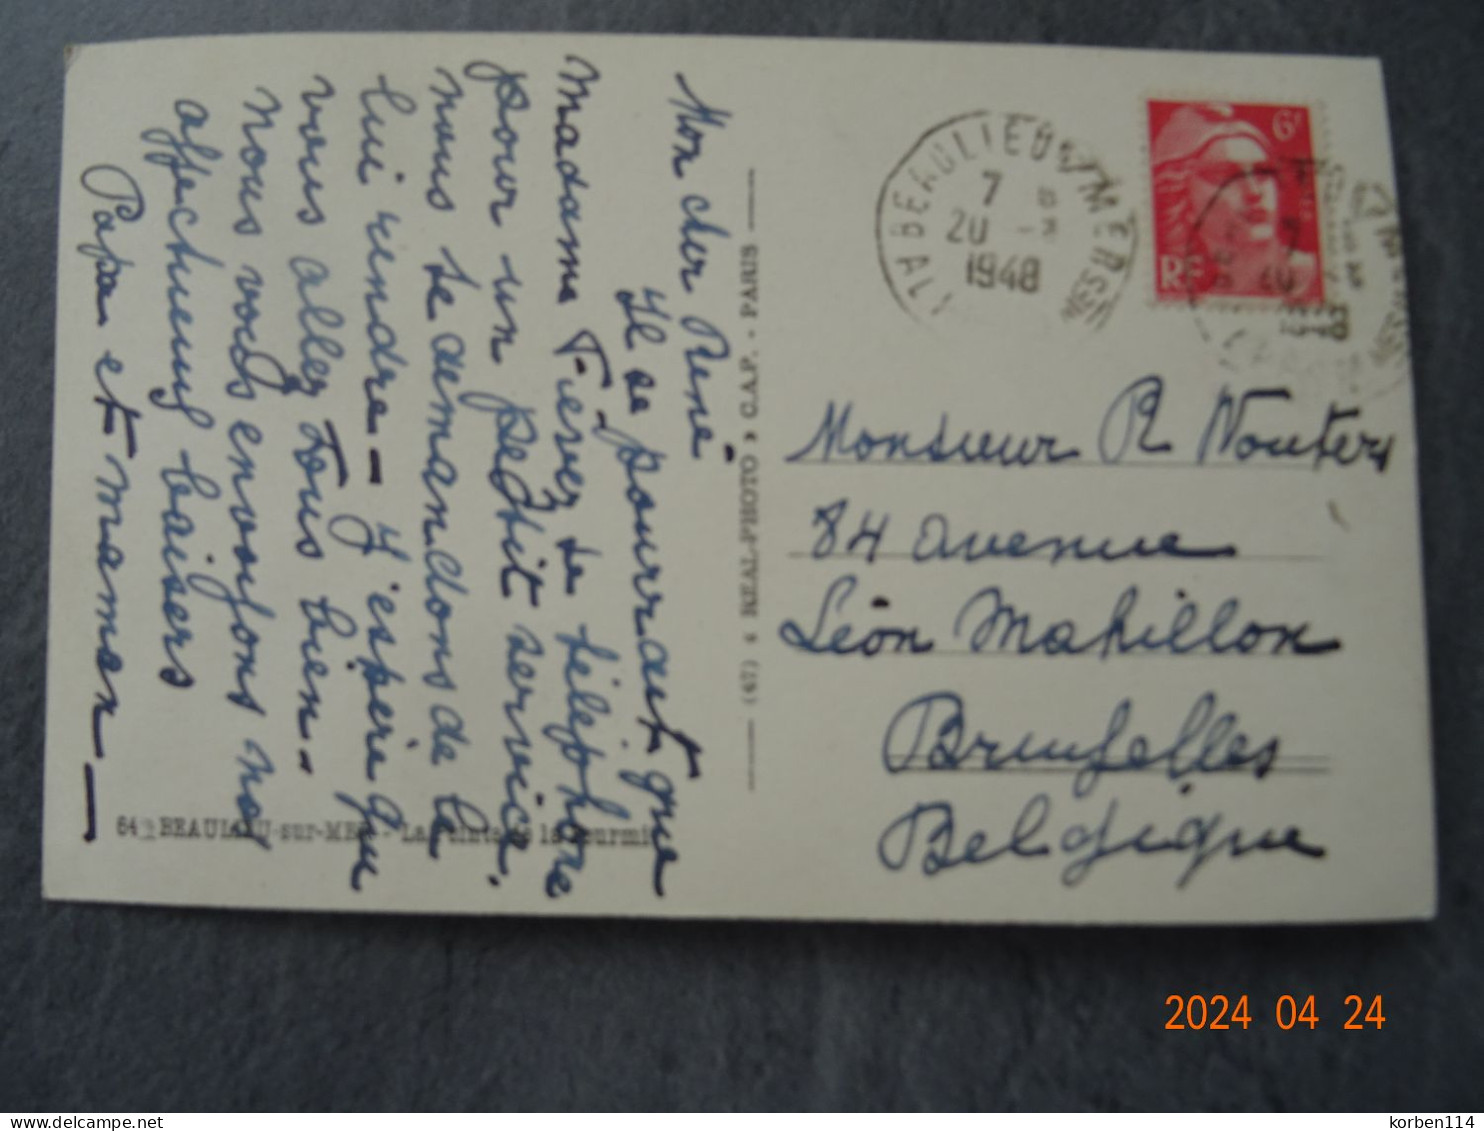 Mon cher René
Il se pourrait que
Madame Fiévez te téléphone
pour un petit service.
nous te demandons de le
lui rendre — J'espère que
vous allez tous bien —
Nous vous envoyons nos
affectueux baisers
Papa et maman —
64 BEAULIEU-sur-MER - La Pointe de la Fourmi
(67) « REAL-PHOTO » C.A.P. - PARIS
BEAULIEU S/MER
7
20
1948
6F
RF
Monsieur R Wouters
84 avenue
Léon Mahillon
Bruxelles
Belgique
2024 04 24
korben114